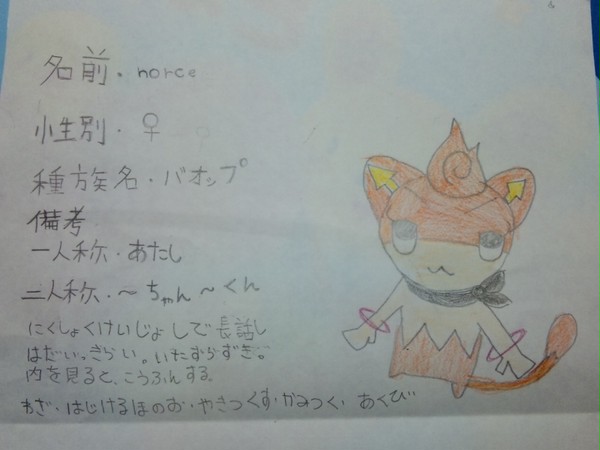 名前・norce
性別・♀
種族名・バオップ
備考
一人称・あたし
二人称・〜ちゃん〜くん
にくしょくけいじょしで長話し
はだいっきらい。いたずらずき。
肉を見ると、こうふんする
わざ・はじけるほのお・やきつくす・かみつく・あくび